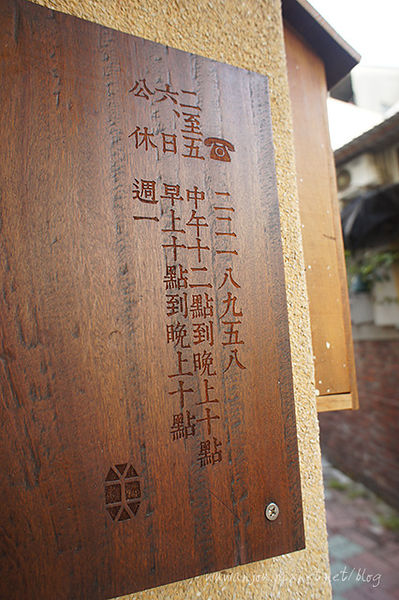 ☎ 二二一八九五八
二至五 中午十二點到晚上十點
六、日 早上十點到晚上十點
公休 週一